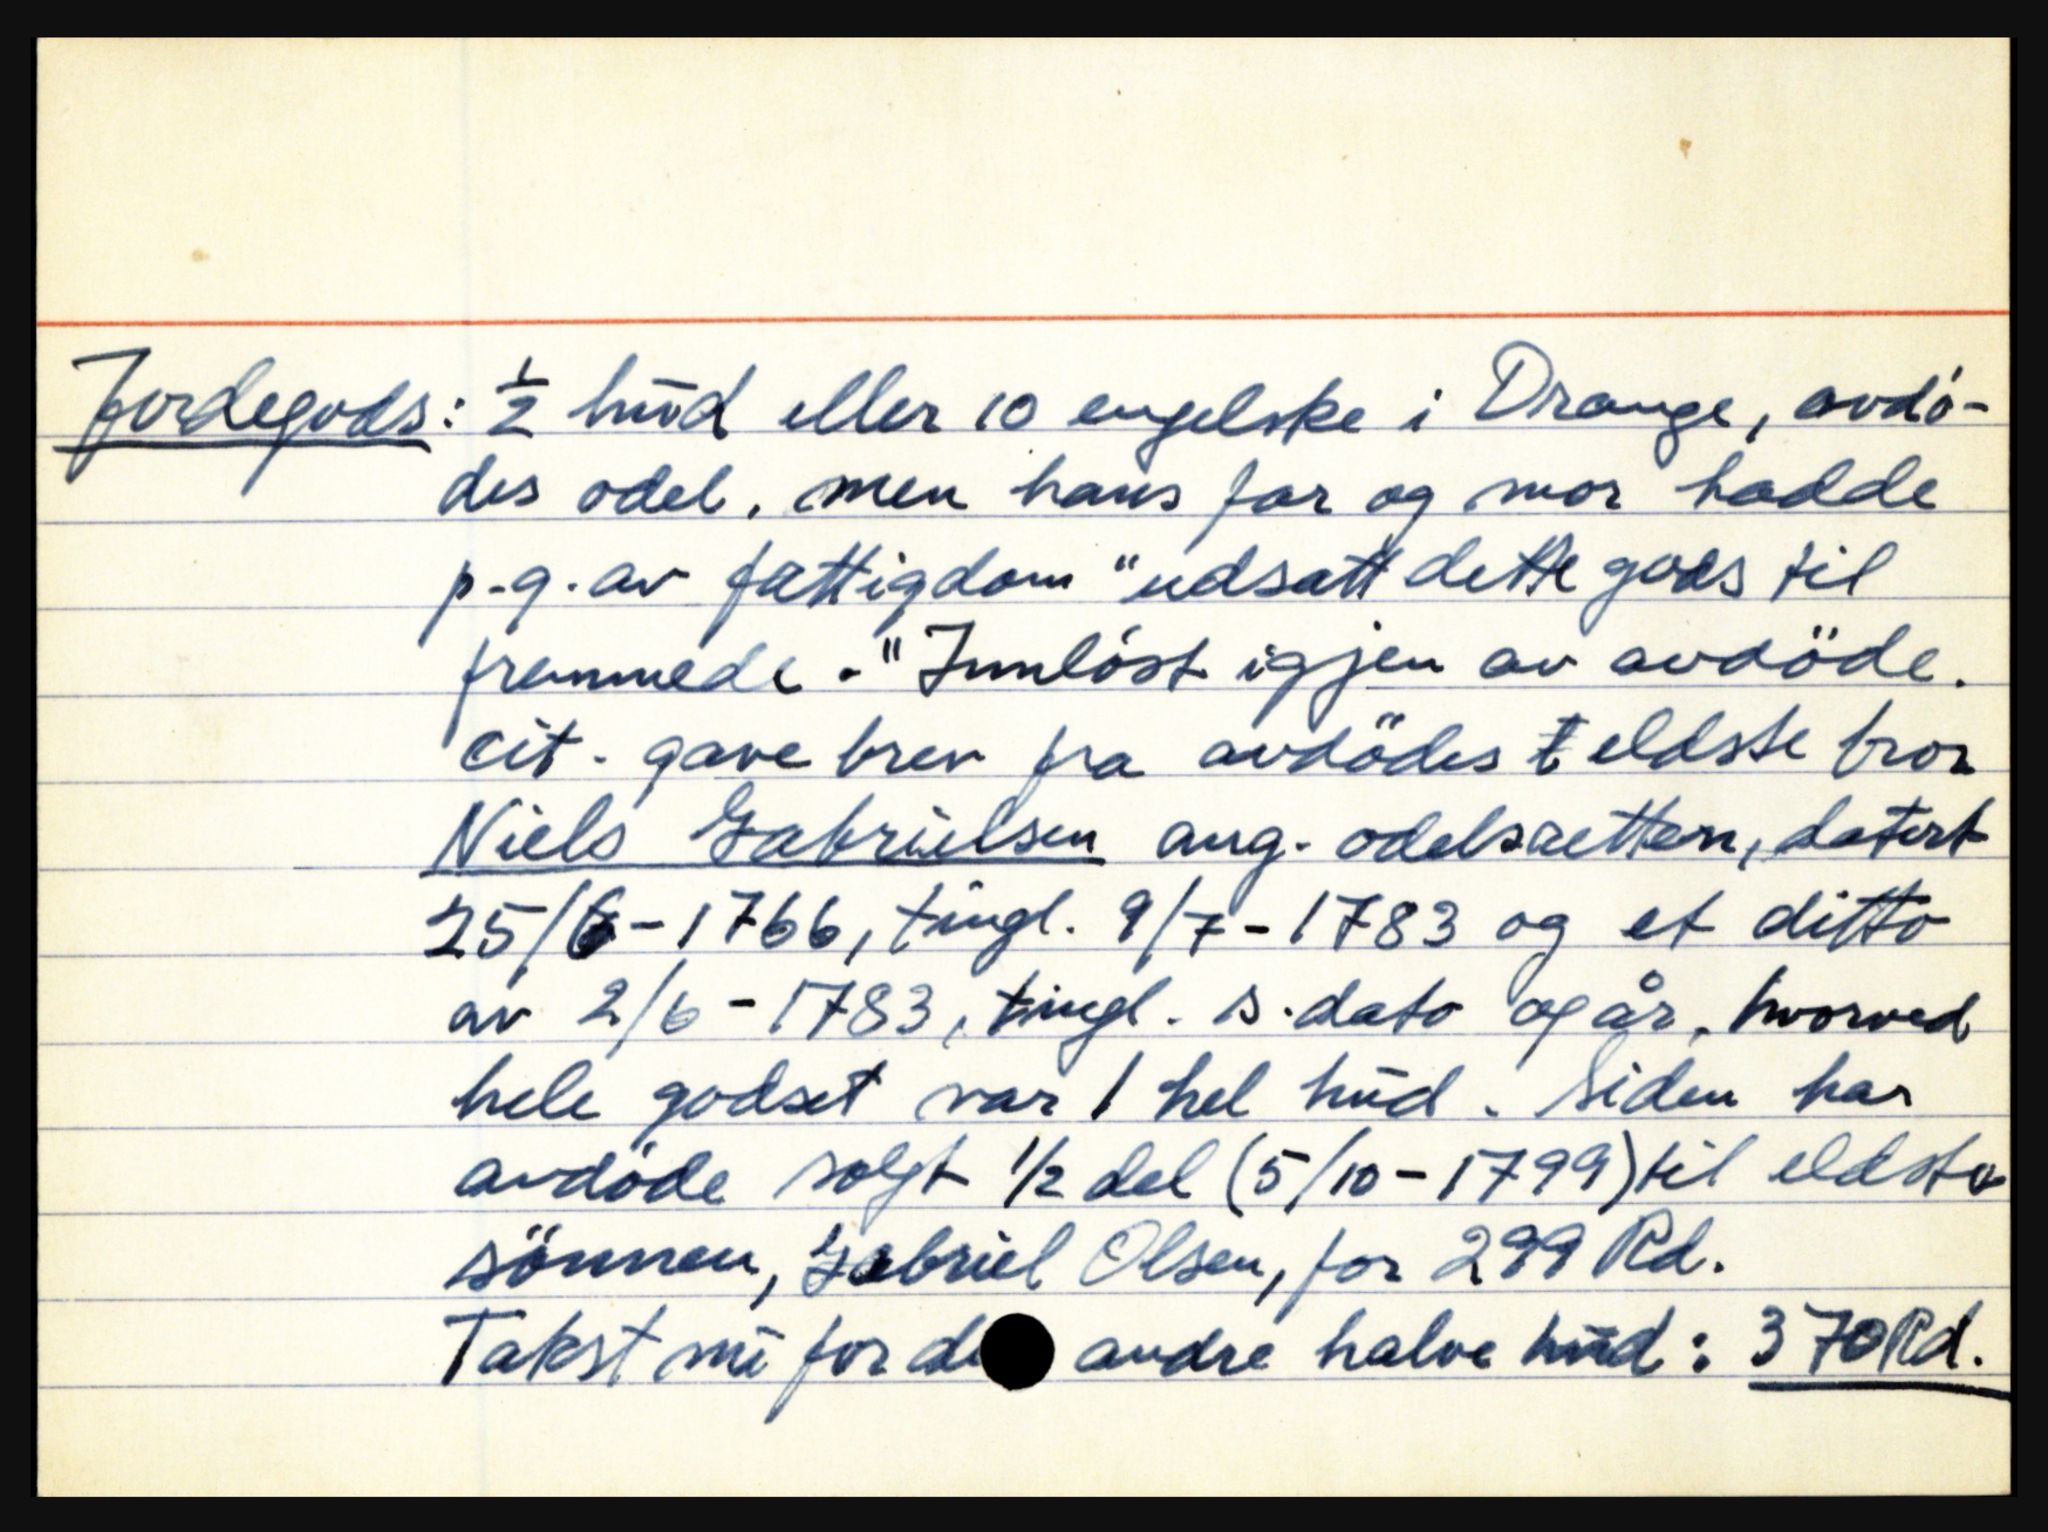 Jordegods: ½ hud eller 10 engelske i Drange, avdö-
des odel, men hans far og mor hadde
p.g. av fattigdom "udsatt dette gods til
fremmede." Innløst igjen av avdöde.
cit. gavebrev fra avdödes eldste bror
Niels Gabrielsen ang. odelsretten, datert
25/6-1766, tingl. 9/7-1783 og et ditto
av 2/6-1783, tingl. s. dato og år, hvorved
hele godset var 1 hel hud. Siden har
avdöde solgt ½ del (5/10-1799) til eldste
sönnen, Gabriel Olsen, for 299 Rd.
Takst nu for de andre halve hud: 370 Rd.